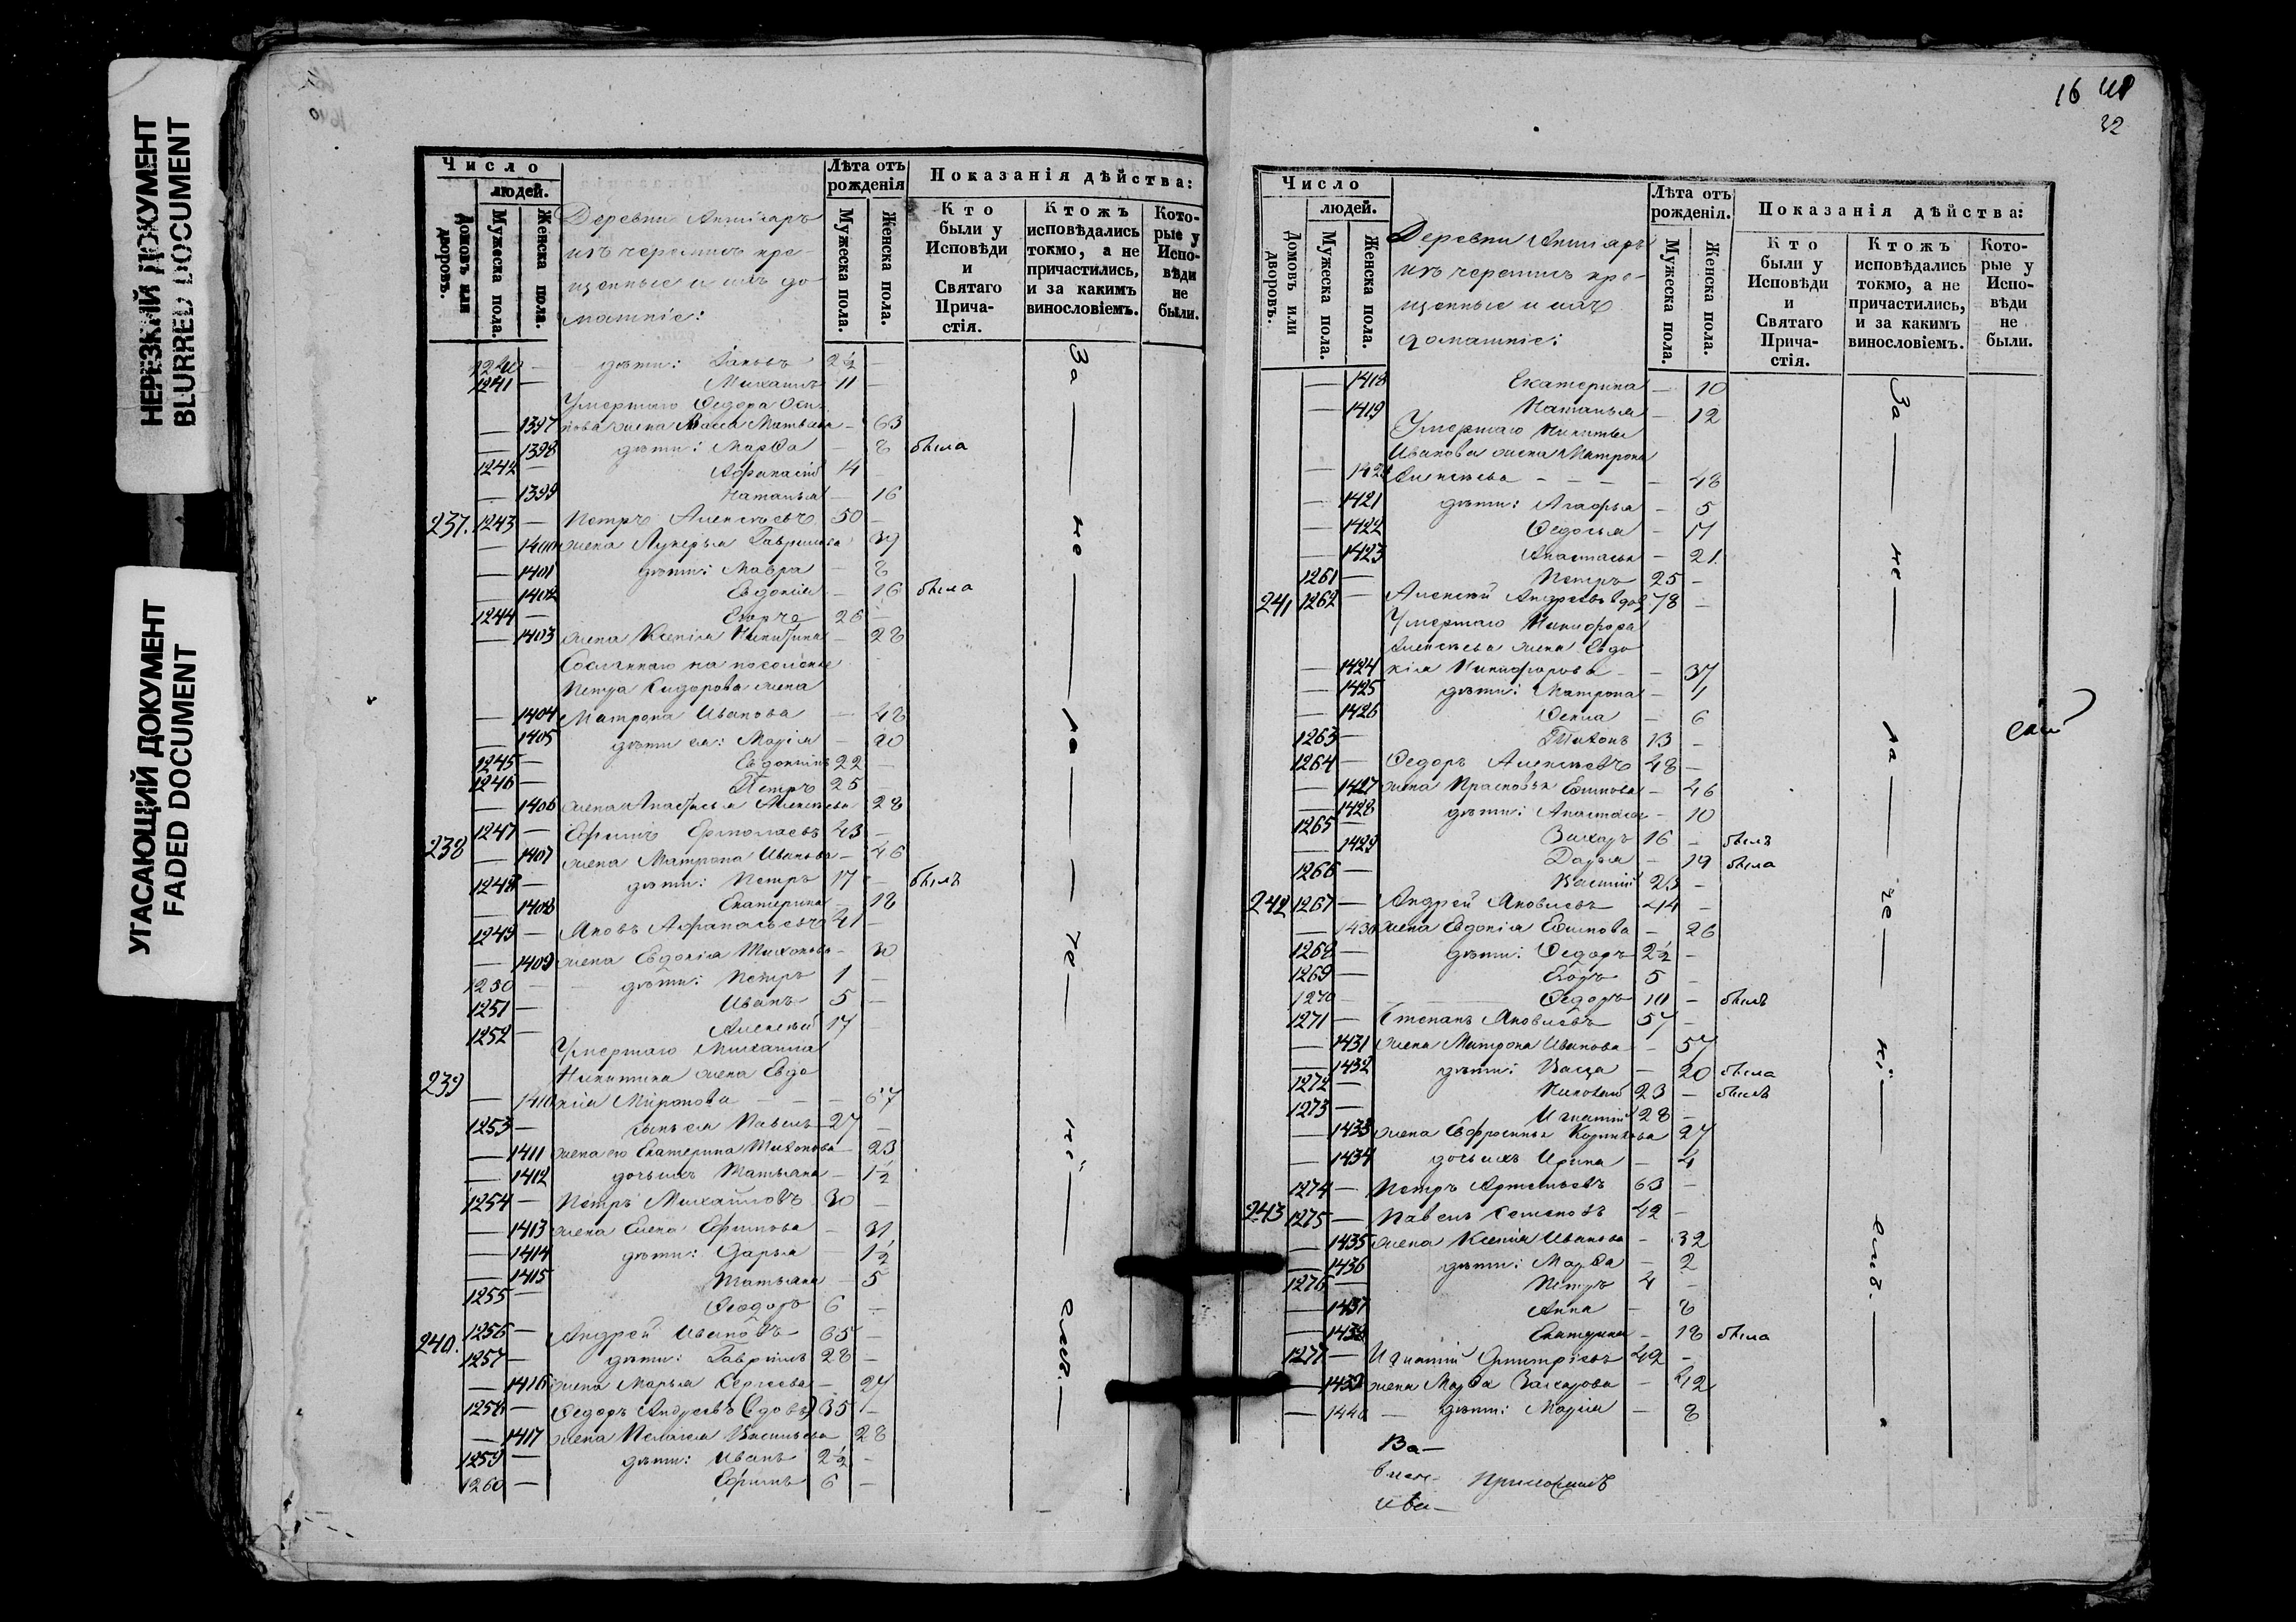 НЕРЕЗКИЙ ДОКУМЕНТ
BLURRED DOCUMENT
УГАСАЮЩИЙ ДОКУМЕНТ
FADED DOCUMENT
Число
людей.
Домовъ или дворовъ.
Мужеска пола.
Женска пола.
Деревни
изъ черемисъ кре-
щенные и ихъ до-
машніе:
Лѣта отъ рожденія
Мужеска пола.
Женска пола.
Показанія дѣйства:
Кто были у Исповѣди и Святаго Прича-стія.
Ктожъ исповѣдались токмо, а не причастились, и за какимъ винословіемъ.
Кото-рые у Испо-вѣди не были.
1240 — дѣти: Яковъ 2½ —
1241 — Михаилъ 11 —
Умершаго Ѳедора Оси-
— 1397 пова жена Матвѣева — 63
— 1398 дѣти: Марѳа — 8 была
1242 — Афанасій 14 —
— 1399 Наталья — 16
237. 1243 — Петръ Алексѣевъ 50 —
— 1400 жена Лукерья Гаврилова 39
— 1401 дѣти: Мавра — 8
— 1402 Евдокія — 16 была
1244 — Егоръ 26 —
— 1403 жена Ксенія Никитина — 28
Сосланнаго на поселеніе
Петра Сидорова жена
— 1404 Матрона Иванова — 48
— 1405 дѣти ея: Марія — 20
1245 — Евдокимъ 22 —
1246 — Петръ 25
— 1406 жена Анастасья Алексѣева 28
238 1247 — Ефимъ Ермолаевъ 43 —
— 1407 жена Матрона Иванова — 46
1248 — дѣти: Петръ 17 — былъ
— 1408 Екатерина 18
1249 — Яковъ Афанасьевъ 41 —
— 1409 жена Евдокія Тихонова — 30
1250 — дѣти: Петръ 1 —
1251 — Иванъ 5 —
1252 — Алексѣй 17
Умершаго Михаила
239 Никитина жена Евдо-
— 1410 кія Миронова — 67
1253 — сынъ ея Павелъ 27 —
— 1411 жена его Екатерина Тихонова — 23
— 1412 дочь ихъ Татьяна — 1½
1254 — Петръ Михайловъ 30 —
— 1413 жена Елена Ефимова — 31
— 1414 дѣти: Дарья — 1½
— 1415 Татьяна — 5
1255 — Ѳеодоръ 6 —
240. 1256 — Андрей Ивановъ 65 —
1257 — дѣти: Гавріилъ 28 —
— 1416 жена Марья Сергѣева — 27
1258 — Ѳедоръ Андреевъ (вдовъ) 35 —
— 1417 жена Пелагея Васильева 28
1259 — дѣти: Иванъ 2½ —
1260 — Ефимъ 6 —
За — не — ра — че — ні — емъ. —
16
32
Число
людей.
Домовъ или дворовъ.
Мужеска пола.
Женска пола.
Деревни
изъ черемисъ кре-
щенные и ихъ
домашніе:
Лѣта отъ рожденія.
Мужеска пола.
Женска пола.
Показанія дѣйства:
Кто были у Исповѣди и Святаго Прича-стія.
Ктожъ исповѣдались токмо, а не причастились, и за какимъ винословіемъ.
Кото-рые у Испо-вѣди не были.
— 1418 Екатерина — 10
— 1419 Наталья — 12
Умершаго Никиты
Иванова жена Матрона
— 1420 Алексѣева — 48
— 1421 дѣти: Агафья — 5
— 1422 Ѳедосья — 17
— 1423 Анастасья — 21
1261 — Петръ 25 —
241 1262 — Алексѣй Андреевъ вдов 78 —
Умершаго Никифора
Алексѣева жена Евдо
— 1424 кія Никифорова — 37
— 1425 дѣти: Матрона — 1
— 1426 Ѳекла — 6
1263 — Тихонъ 13 —
1264 — Ѳедоръ Алексѣевъ 48 —
— 1427 жена Прасковья Ефимова — 46
— 1428 дѣти: Анастасья — 10
1265 — Захаръ 16 — былъ
— 1429 Дарья — 19 была
1266 — Василій 23 —
242 1267 — Андрей Яковлевъ 44 —
— 1430 жена Евдокія Ефимова — 26
1268 — дѣти: Ѳедоръ 2½ —
1269 — Егоръ 5 —
1270 — Ѳедоръ 10 — былъ
1271 — Степанъ Яковлевъ 57 —
— 1431 жена Матрона Иванова — 57
— 1432 дѣти: Васса — 20 была
1272 — Николай 23 — былъ
1273 — Игнатій 28 —
— 1433 жена Евфросинья 27
— 1434 дочь ихъ Ирина — 4
1274 — Петръ Артемьевъ 63 —
243 1275 — Павелъ Семеновъ 42 —
— 1435 жена Ксенія Иванова — 32
— 1436 дѣти: Марѳа — 2
1276 — Петръ 4 —
— 1437 Анна — 8
— 1438 Екатерина — 18 была
1277 — Игнатій Дмитріевъ 42 —
— 1439 жена Марѳа Захарова — 42
— 1440 — дѣти: Марія — 8
За — не — ра — че — ні — емъ. —